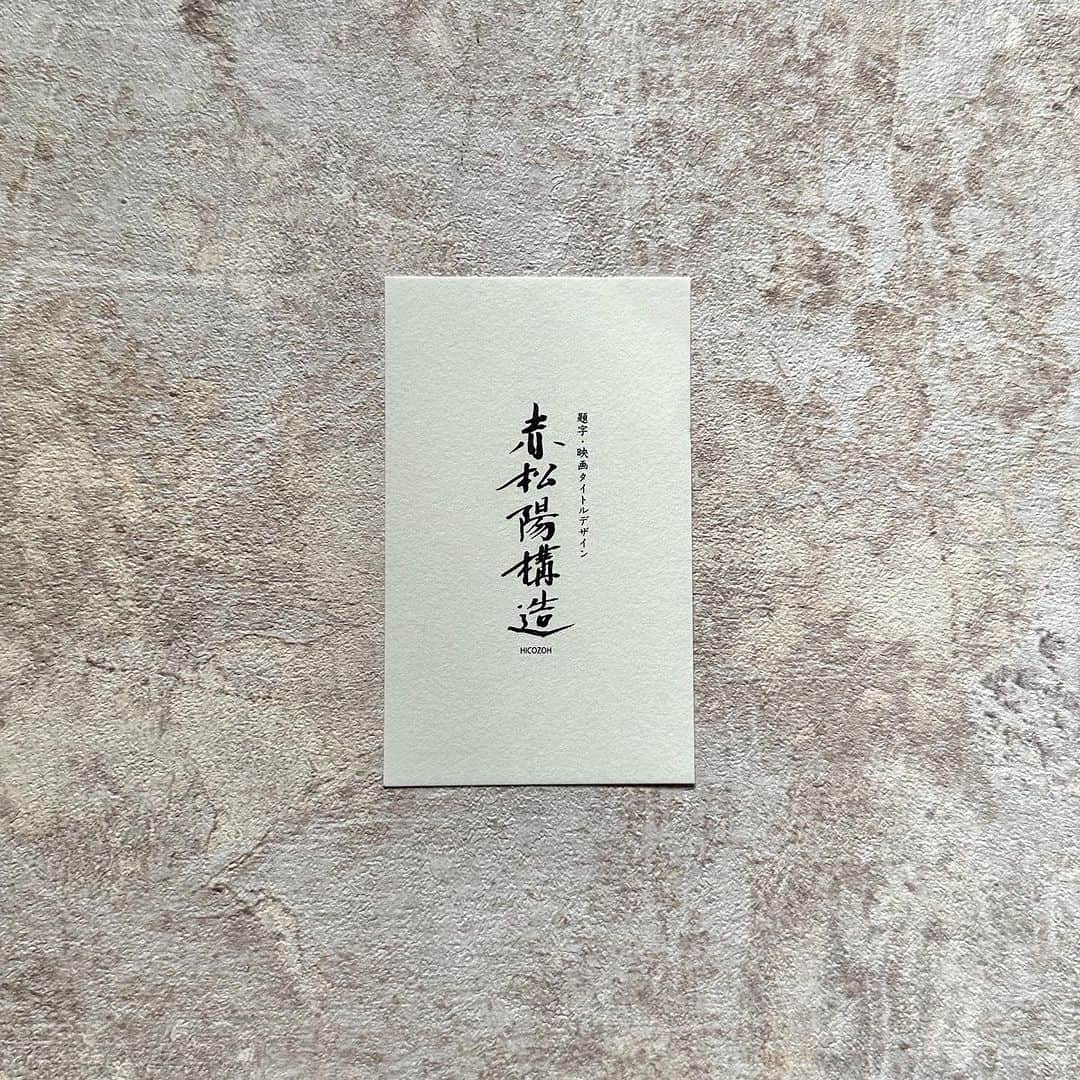 題字・映画タイトルデザイン
赤松陽構造
HICOZOH